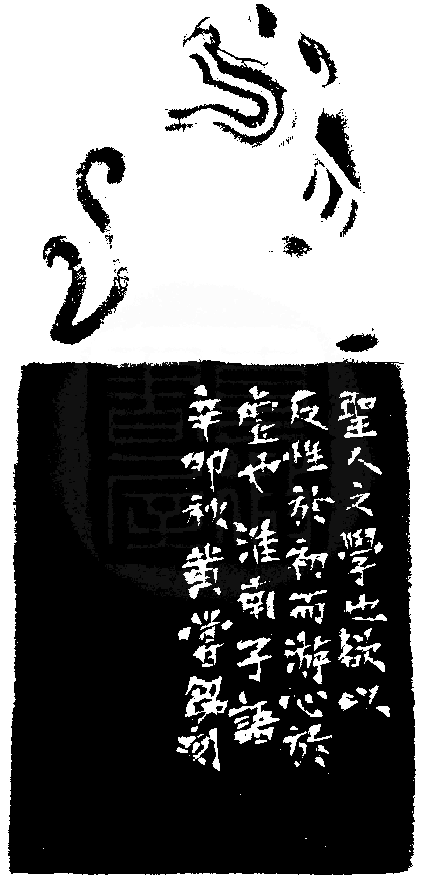 聖人之學也欲以
反性於初而游心於
虛也淮南子語
辛卯秋黃嘗銘刻